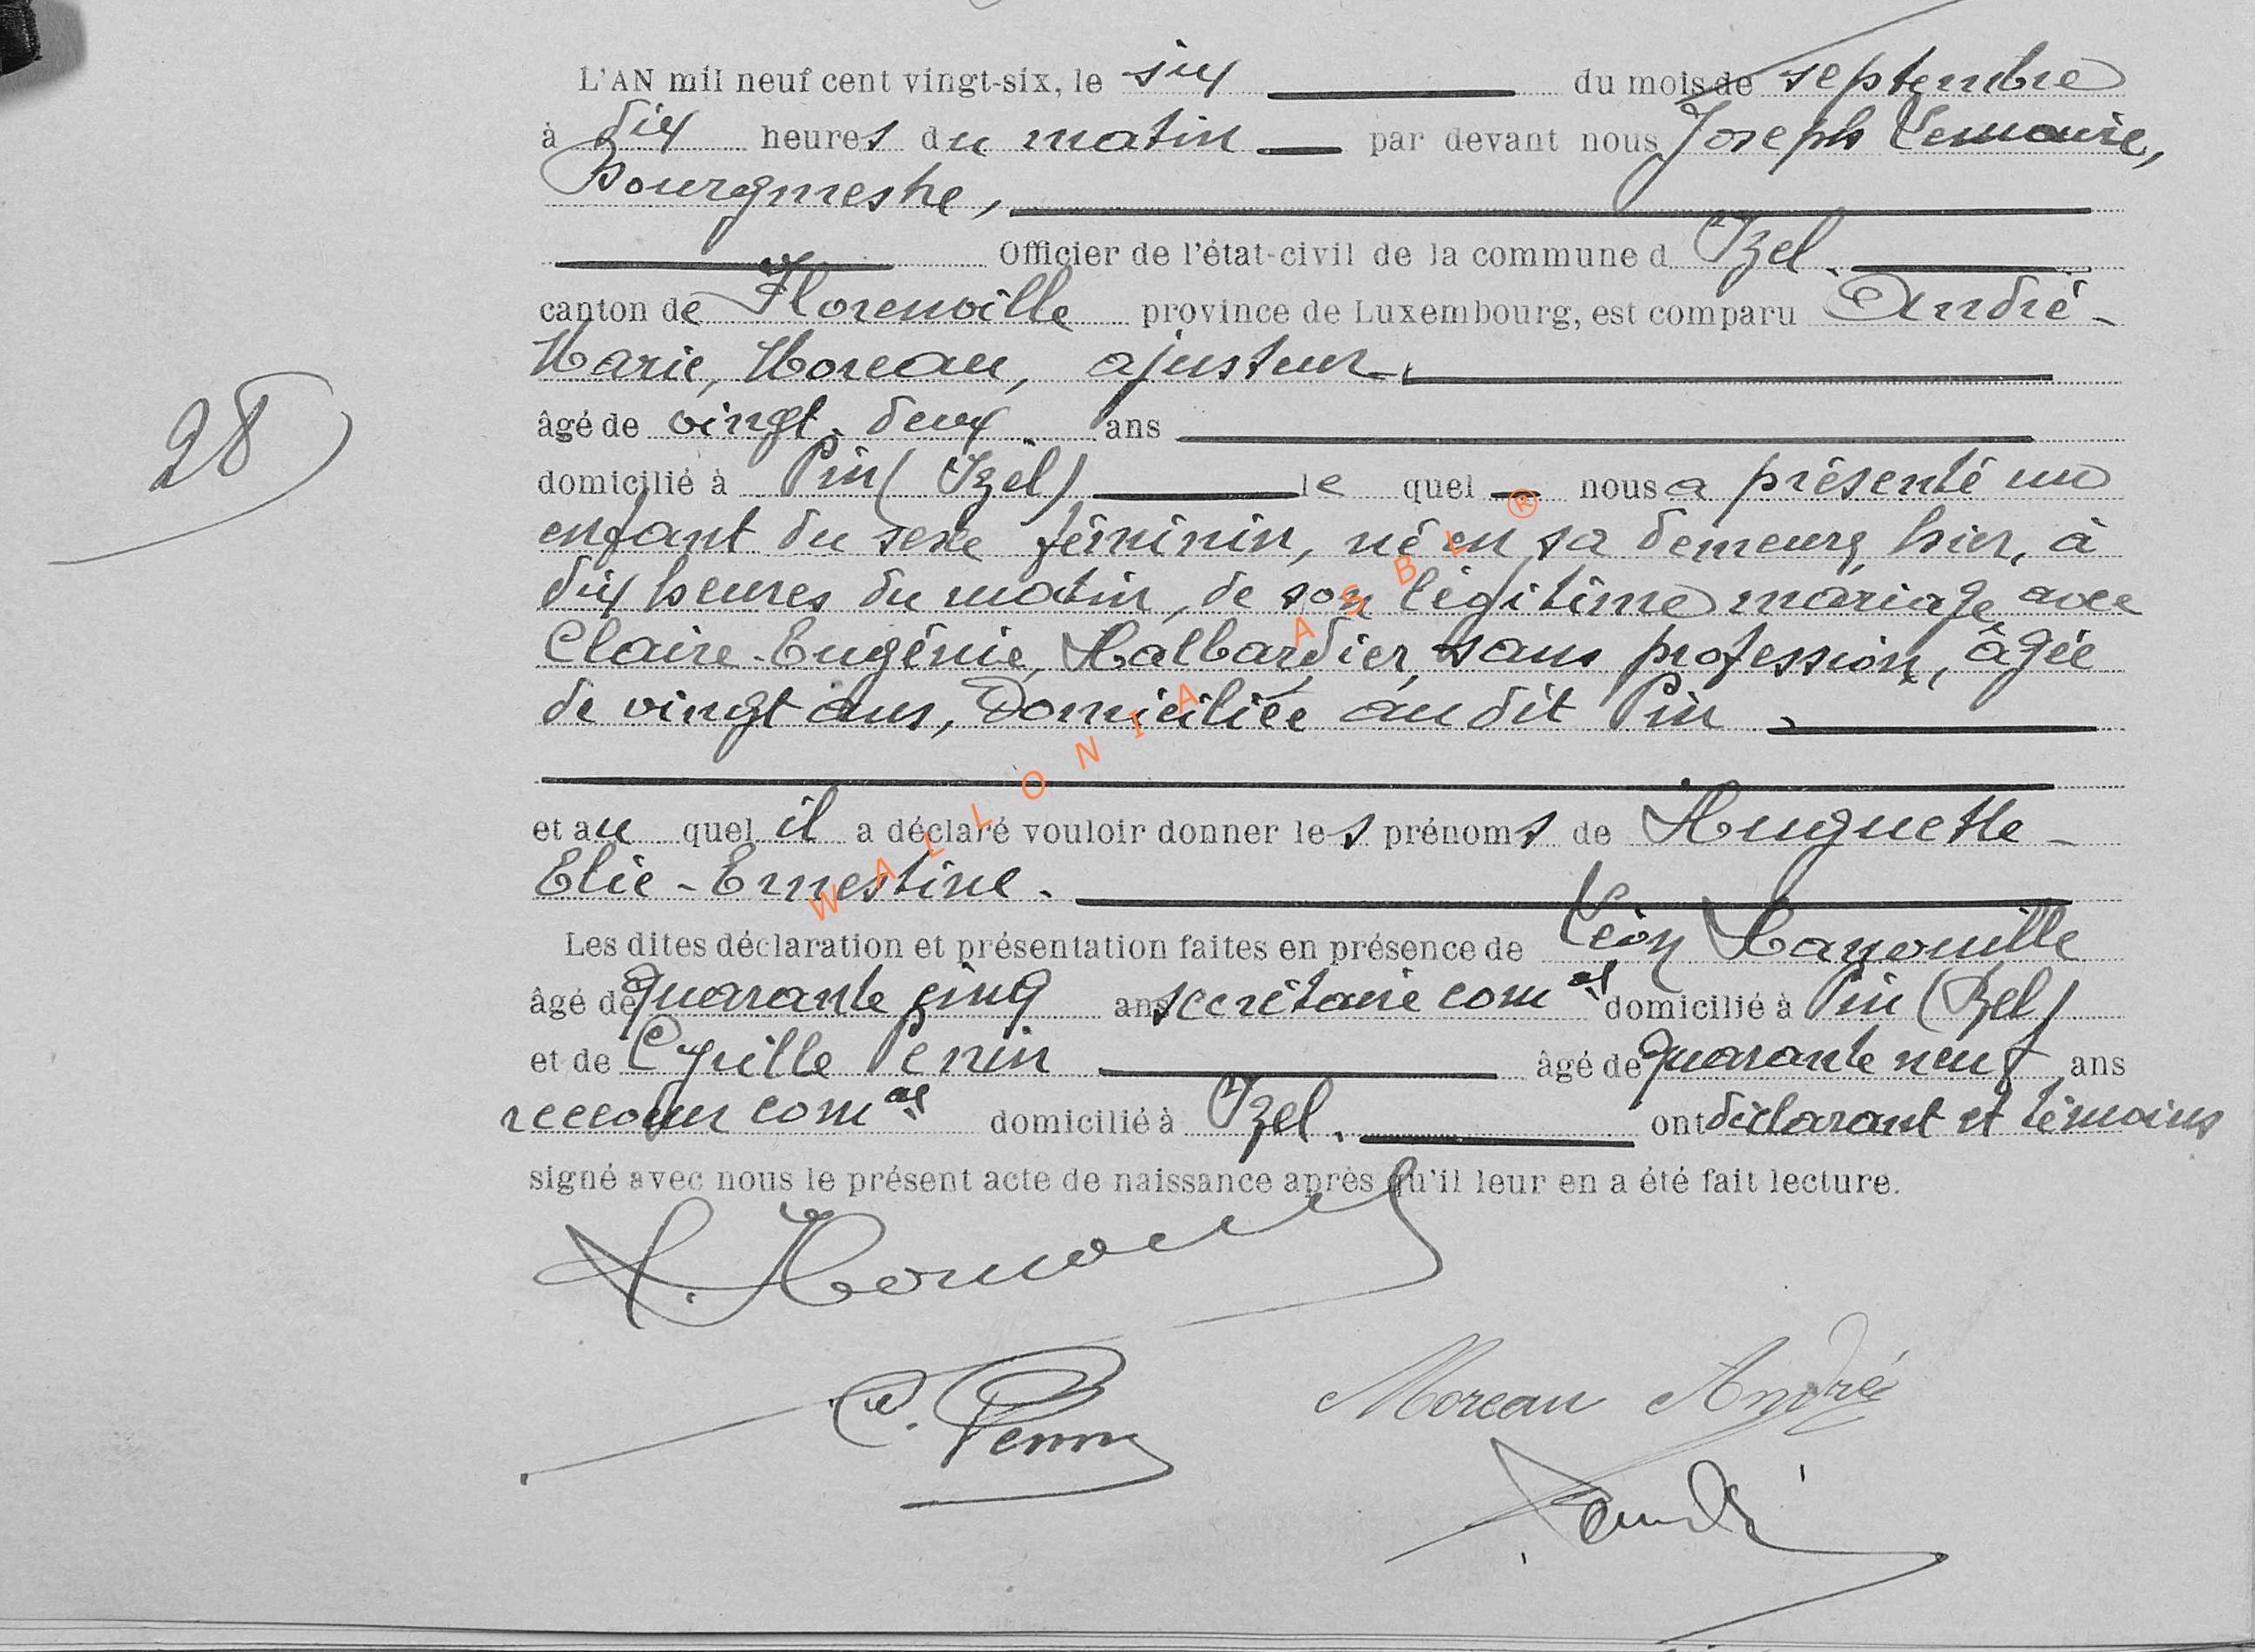 L'AN mil neuf cent vingt-six, le six du mois de septembre
à dix heures du matin par devant nous Joseph Lemaire,
Bourgmestre,
Officier de l'état-civil de la commune d Izel.
canton de Florenville province de Luxembourg, est comparu André-
Marie, Moreau, ajusteur,
âgé de vingt deux ans
domicilié à Pin (Izel) le quel nous a présenté un
28
enfant du sexe féminin, né en sa demeure, hier, à
dix heures du matin, de son légitime mariage avec
Claire-Eugénie, Halbardier, sans profession, âgée
de vingt ans, domiciliée au dit Pin
et au quel il a déclaré vouloir donner les prénoms de Huguette-
Elie-Ernestine.
Les dites déclaration et présentation faites en présence de Léon
âgé de quarante cinq ans secrétaire comal domicilié à Pin (Izel)
et de Cyrille Penin âgé de quarante neuf ans
receveur comal domicilié à Izel. ont déclarant et témoins
signé avec nous le présent acte de naissance après qu'il leur en a été fait lecture.
C. Penin
Moreau André
WALLONIA ASBL ®